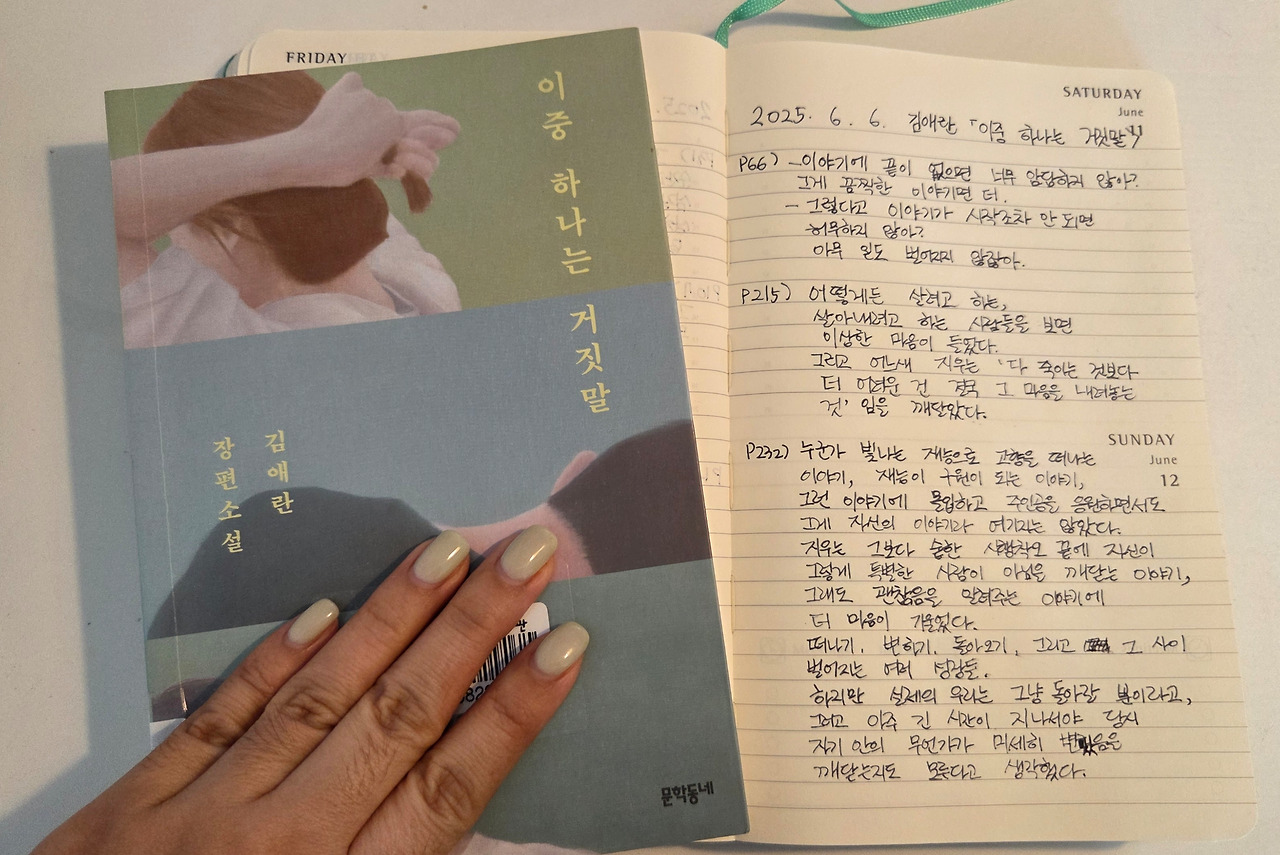 이중 하나는 거짓말
김애란
장편소설
문학동네
FRIDAY
SATURDAY
June
11
2025. 6. 6. 김애란 「이중 하나는 거짓말」
P66) - 이야기에 끝이 없으면 너무 암담하지 않아?
그게 끔찍한 이야기면 더.
- 그렇다고 이야기가 시작조차 안 되면
허무하지 않아?
아무 일도 벌어지지 않잖아.
P215) 어떻게든 살려고 하는,
살아내려고 하는 사람들을 보면
이상한 마음이 들었다.
그리고 어느새 지우는 '다 죽이는 것보다
더 어려운 건 결국 그 마음을 내려놓는
것' 임을 깨달았다.
SUNDAY
June
12
P232) 누군가 빛나는 재능으로 고향을 떠나는
이야기, 재능이 구원이 되는 이야기,
그런 이야기에 몰입하고 주인공을 응원하면서도
그게 자신의 이야기라 여기지는 않았다.
지우는 그보다 숱한 시행착오 끝에 자신이
그렇게 특별한 사람이 아님을 깨닫는 이야기,
그래도 괜찮음을 알려주는 이야기에
더 마음이 기울었다.
떠나기, 변하기, 돌아오기, 그리고 그 사이
벌어지는 여러 성장들.
하지만 실제의 우리는 그냥 돌아갈 뿐이라고,
그러고 아주 긴 시간이 지나서야 당시
자기 안의 무언가가 미세히 변했음을
깨닫는지도 모른다고 생각했다.